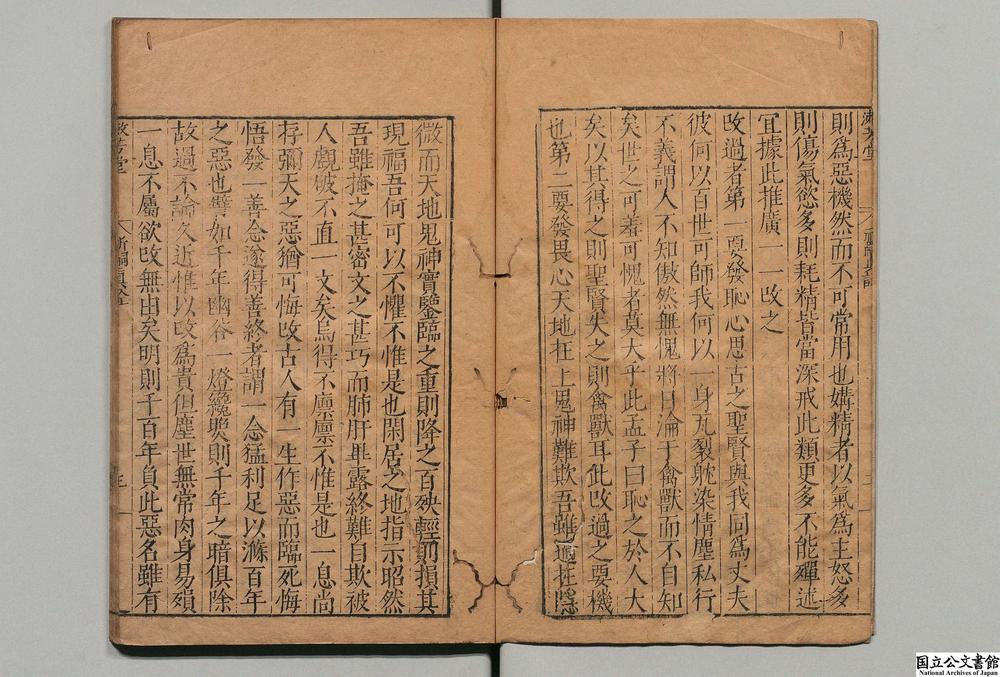 則爲惡機然而不可常用也媾精者以氣爲主怒多
則傷氣慾多則耗精皆當深戒此類更多不能殫述
冝據此推廣一一改之
改過者第一要發恥心思古之聖賢與我同爲丈夫
彼何以百世可師我何以一身瓦裂躭染情塵私行
不義謂人不知傲然無愧將日淪于禽獸而不自知
矣世之可羞可愧者莫大乎此孟子曰恥之於人大
矣以其得之則聖賢失之則禽獸耳此改過之要機
也第二要發畏心天地在上鬼神難欺吾雖過在隱
微而天地鬼神實鑒臨之重則降之百殃輕則損其
現福吾何可以不懼不惟是也閑居之地指示昭然
吾雖掩之甚密文之甚巧而肺肝畢露終難自欺被
人覷破不直一文矣烏得不廪廪不惟是也一息尚
存彌天之惡猶可悔改古人有一生作惡而臨死悔
悟發一善念遂得善終者謂一念猛利足以滌百年
之惡也譬如千年幽谷一燈纔煛則千年之暗俱除
故過不論久近惟以改爲貴但塵世無常肉身易殞
一息不屬欲改無由矣明則千百年負此惡名雖有
国立公文書館
National Archives of Japan